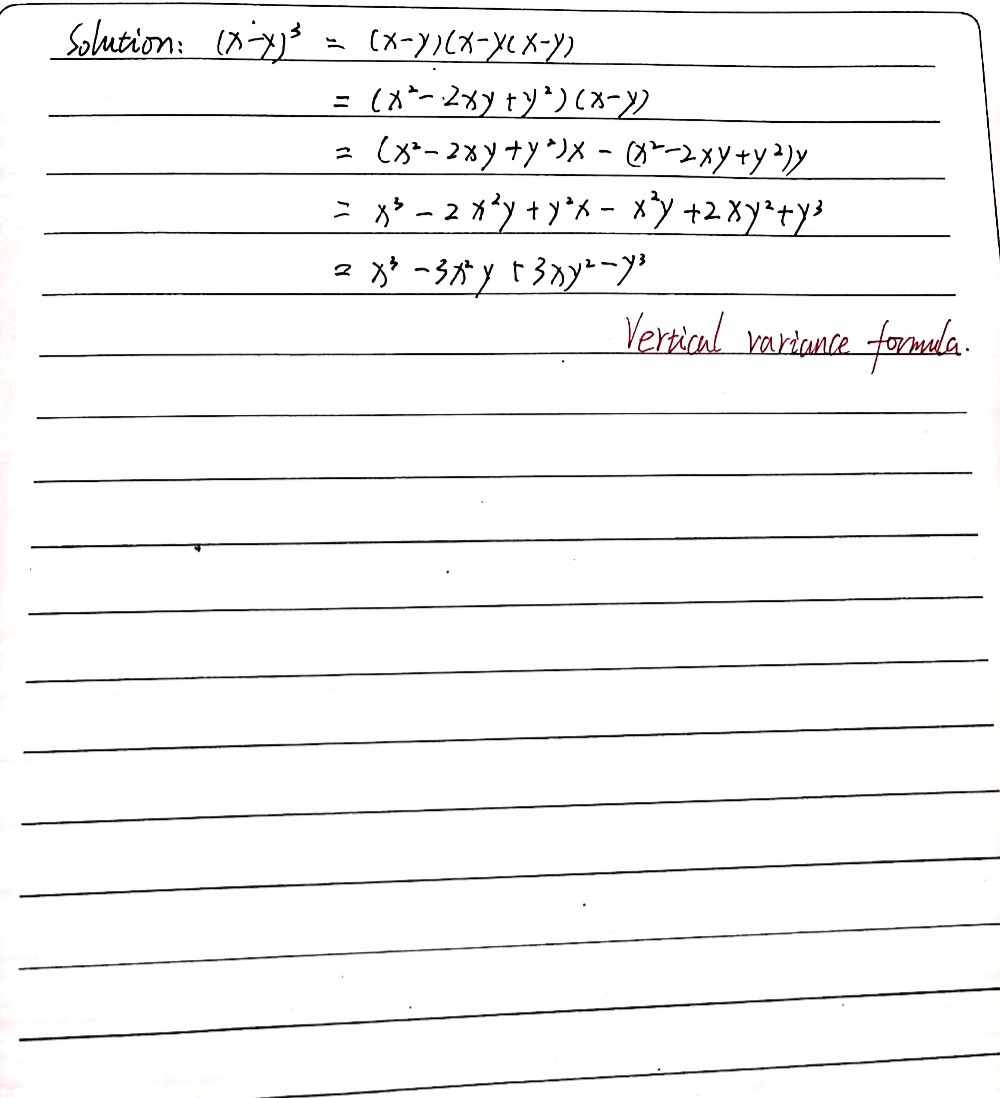 Solution: (x-y)³ = (x-y)(x-y(x-y)
= (x²-2xy+y²)(x-y)
= (x²-2xy+y²)x - (x²-2xy+y²)y
= x³-2x²y+y²x-x²y+2xy²+y³
= x³-3x²y+3xy²-y³
Vertical variance formula.